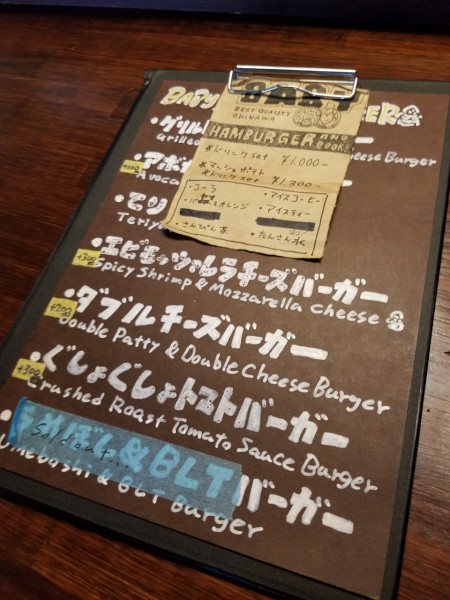 BABY
BABY
BEST QUALITY
OKINAWA
HAMBURGER AND BOOKS
*ドリンクset ¥1,000-
*マッシュポテト
*ドリンクset ¥1,300-
・コーラ
・アイスコーヒー
オレンジ
・アイスティー
・さんぴん茶
・たんさん水
・グリル
Grilled
Cheese Burger
・アボ
Avoca
・てり
Teriy
+300
・エビモッツァレラチーズバーガー
Spicy Shrimp & Mozzarella Cheese
+200
・ダブルチーズバーガー
Double Patty & Double Cheese Burger
+300
・ぐしょぐしょトマトバーガー
Crushed Roast Tomato Sauce Burger
Sold out...
&BLTバーガー
Umeboshi & BLT Burger